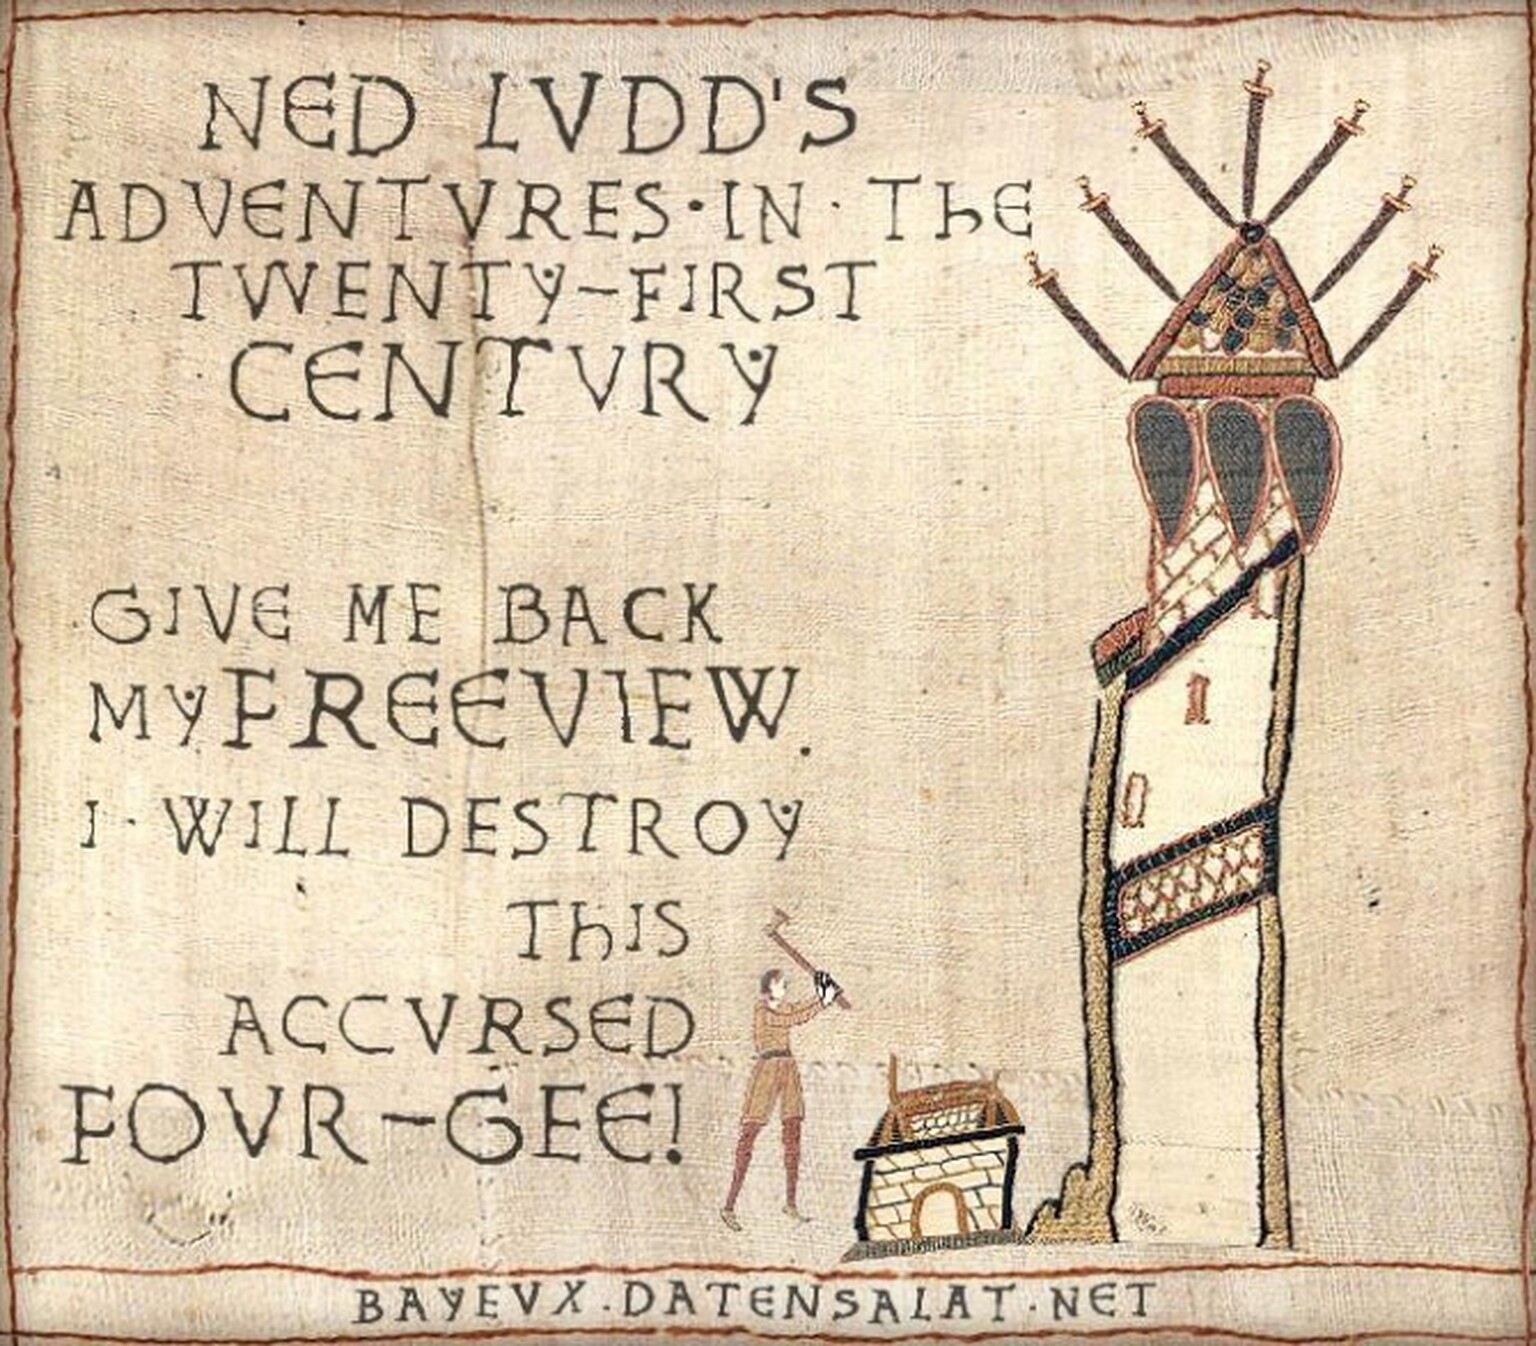 NED LVDD'S
ADVENTVRES·IN·ThE
TWENTY-FIRST
CENTVRY
GIVE ME BACK
MY FREEVIEW.
I· WILL DESTROY
ThIS
ACCVRSED
FOVR-GEE!
1
0
BAYEVX.DATENSALAT.NET